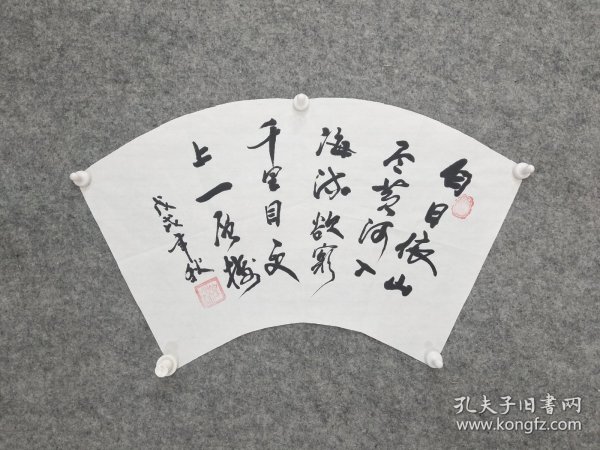 白日依山
尽黄河入
海流欲穷
千里目更
上一层楼
戊戌年秋
孔夫子旧書网
www.kongfz.com